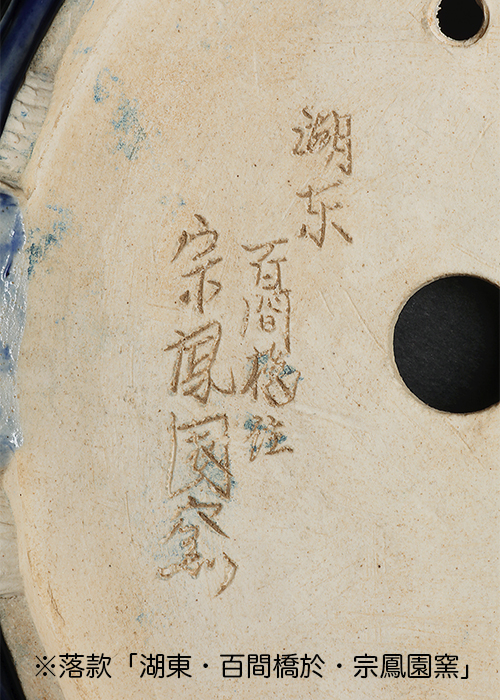 湖东
百間橋於
宗鳳園窯
※落款「湖東・百間橋於・宗鳳園窯」